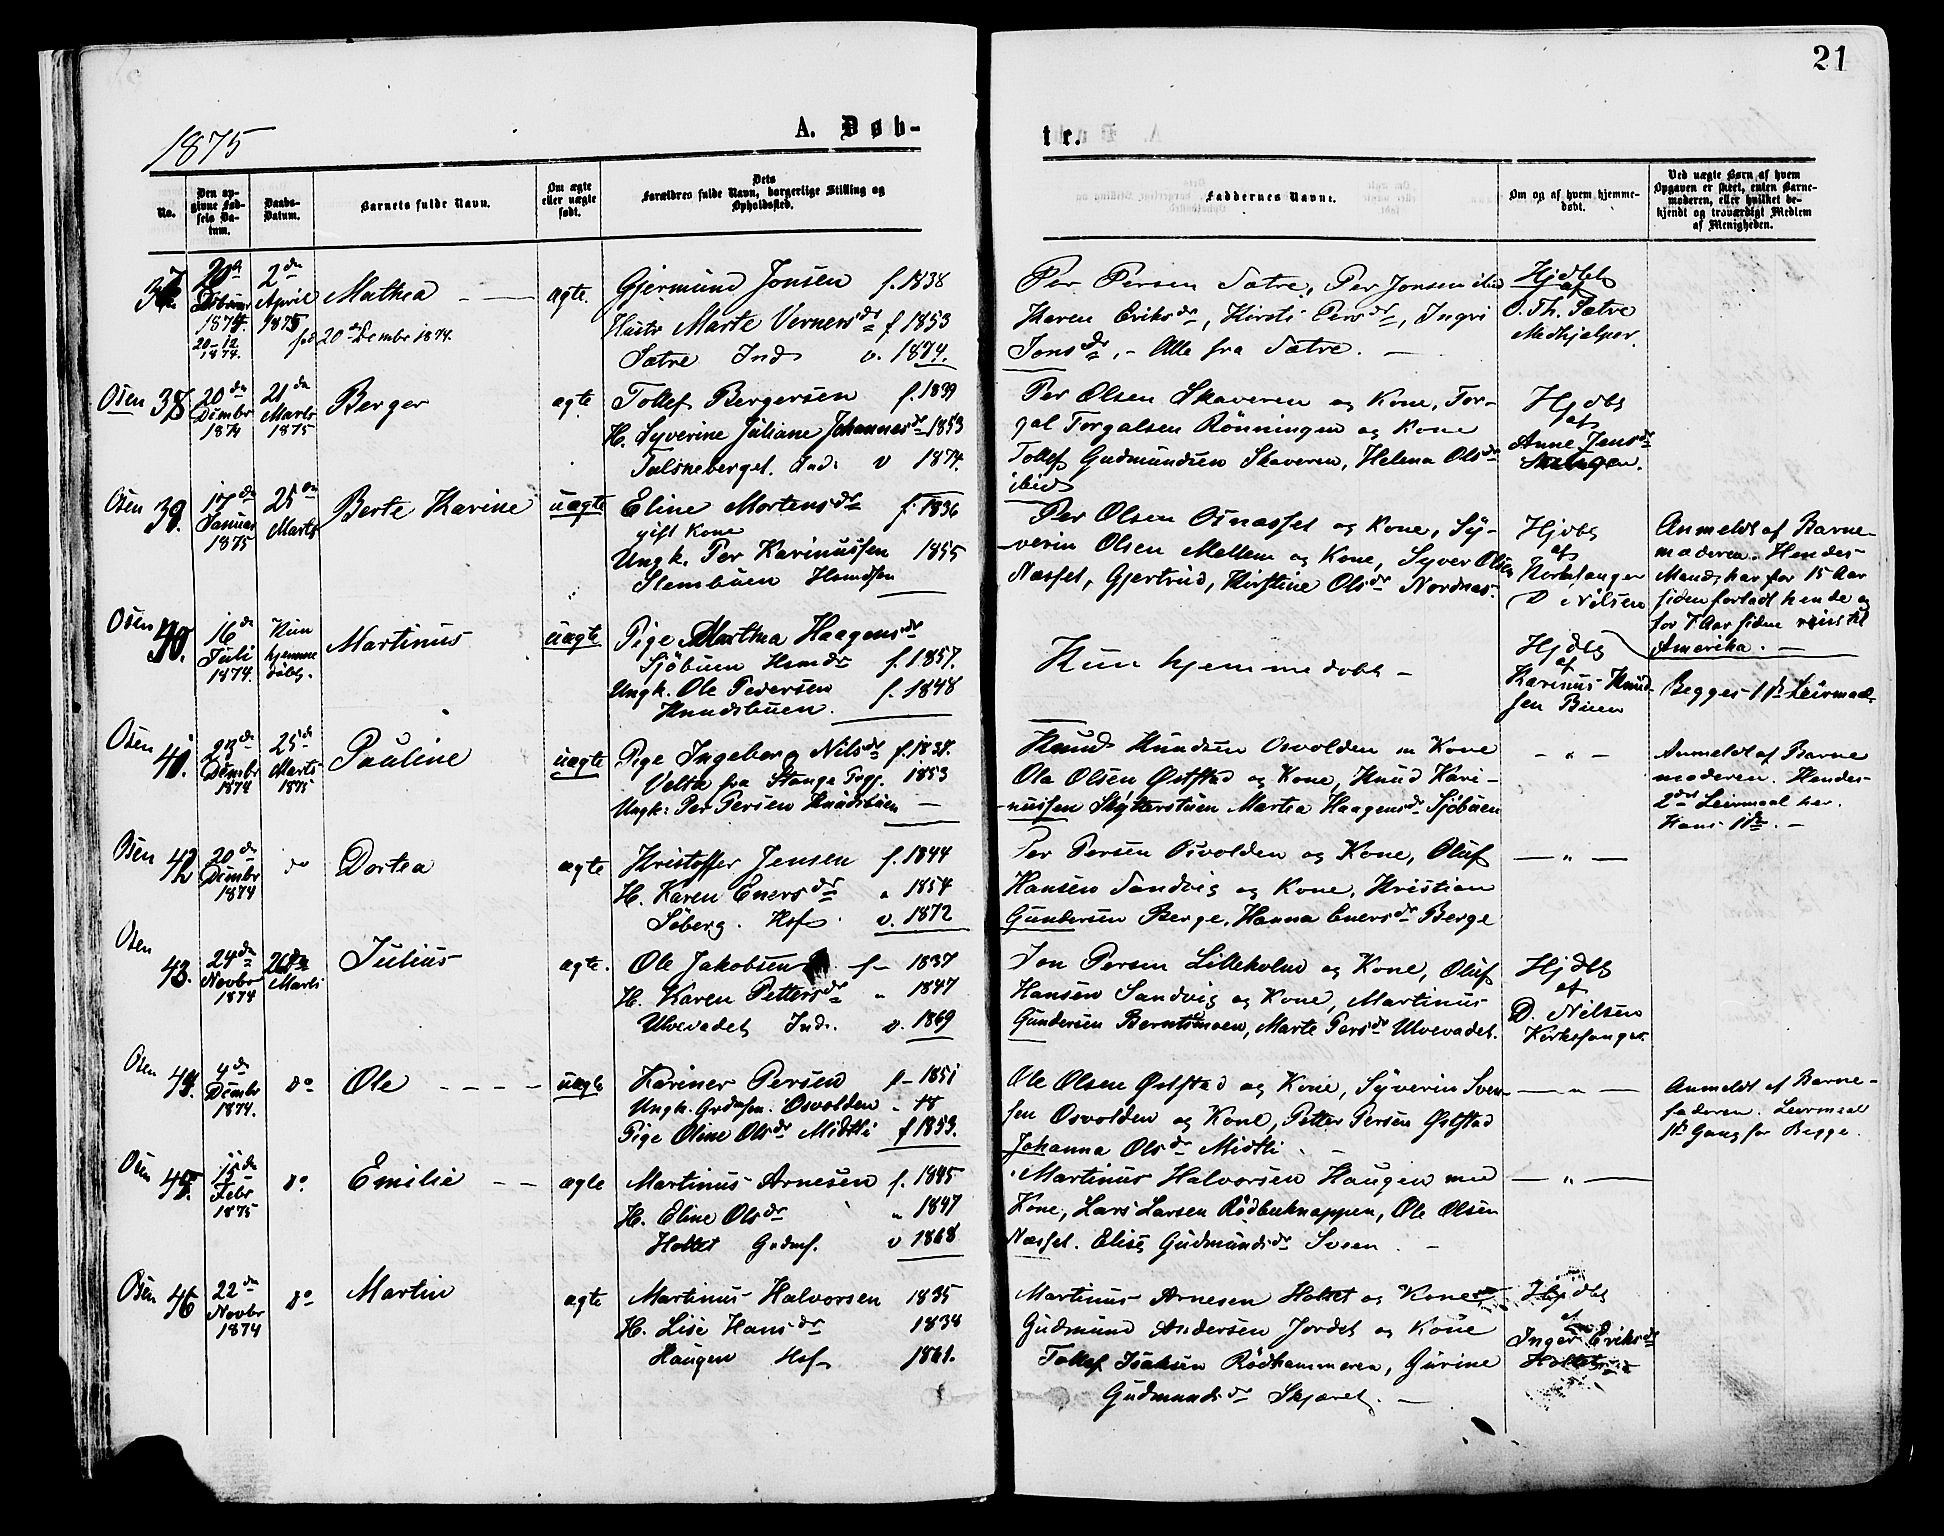 21
1875
A. Døb-
te.
No.
Den opgivne Fødsels Datum.
Daabs-Datum.
Barnets fulde Navn.
Om ægte eller uægte født.
Dets Forældres fulde Navn, borgerlige Stilling og Opholdssted.
Faddernes Navne.
Om og af hvem hjemmedøbt.
Ved uægte Børn af hvem Opgaven er skeet, enten Barnemoderen, eller hvilket bekjendt og troværdigt Medlem af Menigheden.
37.
1874.
20-12 1874.
2den April 1875
Mathea
20de Dembr 1874.
ægte.
Gjermund Jonsen f. 1838
Hustr Marte Vernersdr f 1853
Sætre Ind v. 1874.
Per Persen Sætre, Per Jonsen
Karen Eriksdr, Kirsti Persdr, Ingri
Jonsdr. - Alle fra Sætre. -
Hjdbt af
O. Th. Sætre
Medhjelper.
Osen 38
20de Dembr 1874
21de Marts 1875
Berger
ægte
Tollef Bergersen f. 1839
H. Syverine Juliane Johannesdr 1853
Ind. v 1874.
Per Olsen Skaveren og Kone, Tor-
gal Torgalsen Rönningen og Kone
Tollef Gudmundsen Skaveren, Helena Olsdr
ibid
Hjdbt
af
Anne Jensdr
Osen 39.
17de Januar 1875
25de Marts
Berte Karine
uægte
Eline Mortensdr f. 1836
gift Kone
Ungk. Per Karinussen 1855
Stenbuen Hsmdsøn
Per Olsen Osnæsset og Kone, Sy-
verin Olsen Mellem og Kone, Syver Olsen
Næsset, Gjertrud, Kirstine Olsdr Nordnæs.
Hjdbt
af
Kirkesanger
D Nilsen
Anmeldt af Barne-
moderen. Hendes
Mand har for 15 Aar
siden forladt hende og
for 7 Aar siden reist til
Amerika. -
Osen 40.
16de Juli 1874.
Kun hjemmedøbt.
Martinus
uægte
Pige Marthea Haagensdr
Sjöbuen Hsmdr f. 1857.
Ungk. Ole Pedersen f. 1848
Knudsbuen.
Kun hjemmedøbt -
Hjdbt
af
Karinus Knud-
sen Buen
Begges 1ste Leiermaal
Osen 41.
23de Dembr 1874
25de Marts 1875
Pauline
uægte
Pige Ingeborg Nilsdr f. 1838.
Velta fra Stange Prgj. 1853
Ungk: Per Persen Knudsbuen -
Knud Knudsen Osvolden m Kone
Ole Olsen Øststad og Kone, Knud Kari-
nussen Skytterstuen Martea Haagensdr Sjöbuen
- " -
Anmeldt af Barne
moderen. Hendes
2det Leiermaal her.
Hans 1ste. -
Osen 42
20de Dembr 1874
do
Dortea
ægte
Kristoffer Jensen f. 1844
H. Karen Enersdr " 1854
Söberg. Hsf v. 1872
Per Persen Osvolden og Kone, Oluf
Hansen Sandvig og Kone, Kristian
Gundersen Berge, Hanna Enersdr Berge
- " -
Osen 43.
24de Novbr 1874
Marts
Julius
ægte.
Ole Jakobsen f- 1837
H. Karen Pettersdr " 1847
Ulvevadet Ind. v. 1869
Jon Persen Lilleholm og Kone, Oluf
Hansen Sandvig og Kone, Martinus
Gundersen Berntsmoen, Marte Persdr Ulvevadet.
Hjdbt
af
D. Nilsen
Kirkesanger
Osen 44.
4de Dembr 1874.
do
Ole - - - -
uægte
Kariner Persen f- 1851
Ungk. Grdmsøn. Osvolden
Pige Oline Olsdr Midtli f 1853.
Ole Olsen Øststad og Kone, Syverin Sven-
sen Osvolden og Kone, Petter Persen Øststad
Johanna Olsdr Midtli -
- " -
Anmeldt af Barne-
faderen. Leiermaal
1ste Gang for Begge.
Osen 45.
Febr 1875
do.
Emilie - -
ægte
Martinus Arnesen f. 1845
H. Eline Olsdr " 1847
Holtet Grdmf. v 1868
Martinus Halvorsen Haugen med
Kone, Lars Larsen Rödbuknappen, Ole Olsen
Næsset. Elise Gudmundsdr Sveen. -
- " -
Osen 46
22de Novbr 1874
do
Martin
ægte
Martinus Halvorsen 1835
H. Lise Hansdr 1838
Haugen Hsf 1861.
Martinus Arnesen Holtet og Kone
Gudmund Andersen Jordet og Kone
Tollef Isaksen Rödhammeren, Gurine
Gudmundsdr Skjæret. -
Hjdbt
af
Inger Eriksdr